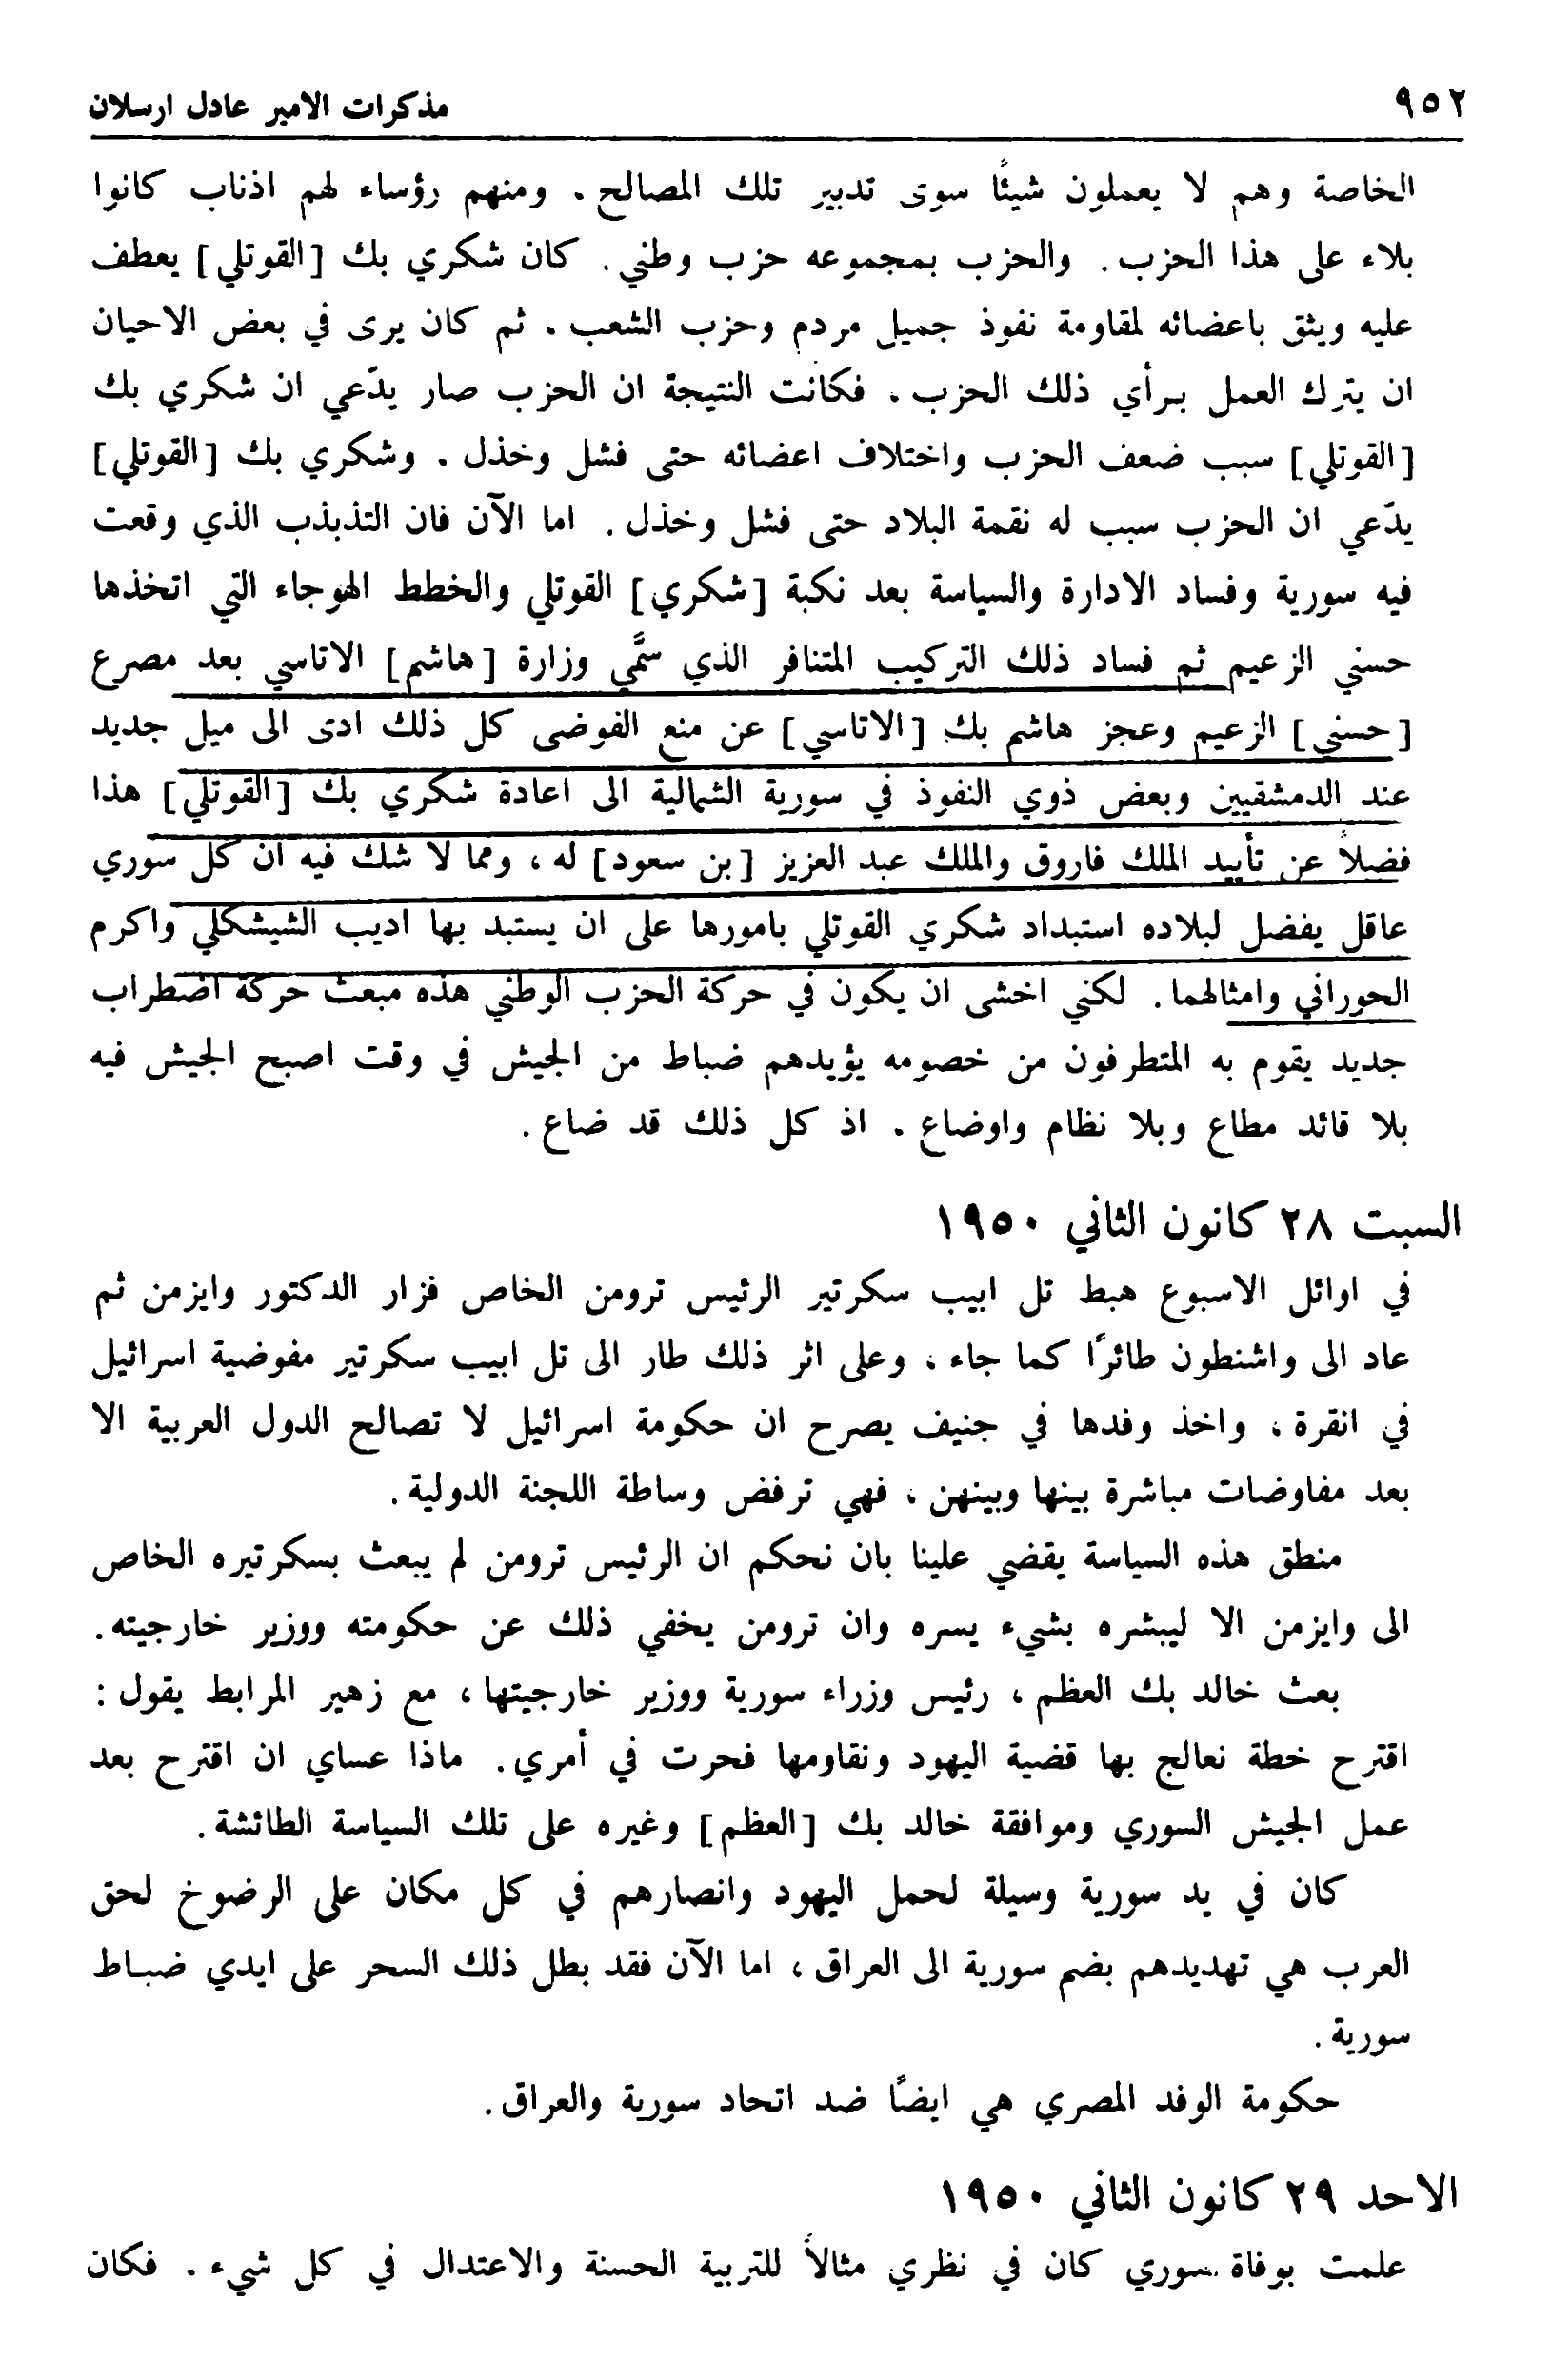 ٩٥٢ مذكرات الامير عادل ارسلان
الخاصة وهم لا يعملون شيئًا سوى تدبير تلك المصالح . ومنهم رؤساء لهم اذناب كانوا
بلاء على هذا الحزب . والحزب بمجموعه حزب وطني . كان شكري بك [القوتلي] يعطف
عليه ويثق باعضائه لمقاومة نفوذ جميل مردم وحزب الشعب . ثم كان يرى في بعض الاحيان
ان يترك العمل برأي ذلك الحزب . فكانت النتيجة ان الحزب صار يدّعي ان شكري بك
[القوتلي] سبب ضعف الحزب واختلاف اعضائه حتى فشل وخذل . وشكري بك [القوتلي]
يدّعي ان الحزب سبب له نقمة البلاد حتى فشل وخذل . اما الآن فان التذبذب الذي وقعت
فيه سورية وفساد الادارة والسياسة بعد نكبة [شكري] القوتلي والخطط الهوجاء التي اتخذها
حسني الزعيم ثم فساد ذلك التركيب المتنافر الذي سمَّي وزارة [هاشم] الاتاسي بعد مصرع
[حسني] الزعيم وعجز هاشم بك [الاتاسي] عن منع الفوضى كل ذلك ادى الى ميل جديد
عند الدمشقيين وبعض ذوي النفوذ في سورية الشمالية الى اعادة شكري بك [القوتلي] هذا
فضلاً عن تأييد الملك فاروق والملك عبد العزيز [بن سعود] له ، ومما لا شك فيه ان كل سوري
عاقل يفضل لبلاده استبداد شكري القوتلي بامورها على ان يستبد بها اديب الشيشكلي واكرم
الحوراني وامثالهما . لكني اخشى ان يكون في حركة الحزب الوطني هذه مبعث حركة اضطراب
جديد يقوم به المتطرفون من خصومه يؤيدهم ضباط من الجيش في وقت اصبح الجيش فيه
بلا قائد مطاع وبلا نظام واوضاع . اذ كل ذلك قد ضاع .
السبت ٢٨ كانون الثاني ١٩٥٠
في اوائل الاسبوع هبط تل ابيب سكرتير الرئيس ترومن الخاص فزار الدكتور وايزمن ثم
عاد الى واشنطون طائرًا كما جاء ، وعلى اثر ذلك طار الى تل ابيب سكرتير مفوضية اسرائيل
في انقرة ، واخذ وفدها في جنيف يصرح ان حكومة اسرائيل لا تصالح الدول العربية الا
بعد مفاوضات مباشرة بينها وبينهن ، فهي ترفض وساطة اللجنة الدولية .
منطق هذه السياسة يقضي علينا بان نحكم ان الرئيس ترومن لم يبعث بسكرتيره الخاص
الى وايزمن الا ليبشره بشيء يسره وان ترومن يخفي ذلك عن حكومته ووزير خارجيته .
بعث خالد بك العظم ، رئيس وزراء سورية ووزير خارجيتها ، مع زهير المرابط يقول :
اقترح خطة نعالج بها قضية اليهود ونقاومها فحرت في أمري . ماذا عساي ان اقترح بعد
عمل الجيش السوري وموافقة خالد بك [العظم] وغيره على تلك السياسة الطائشة .
كان في يد سورية وسيلة لحمل اليهود وانصارهم في كل مكان على الرضوخ لحق
العرب هي تهديدهم بضم سورية الى العراق ، اما الآن فقد بطل ذلك السحر على ايدي ضباط
سورية .
حكومة الوفد المصري هي ايضًا ضد اتحاد سورية والعراق .
الاحد ٢٩ كانون الثاني ١٩٥٠
علمت بوفاة سوري كان في نظري مثالاً للتربية الحسنة والاعتدال في كل شيء . فكان